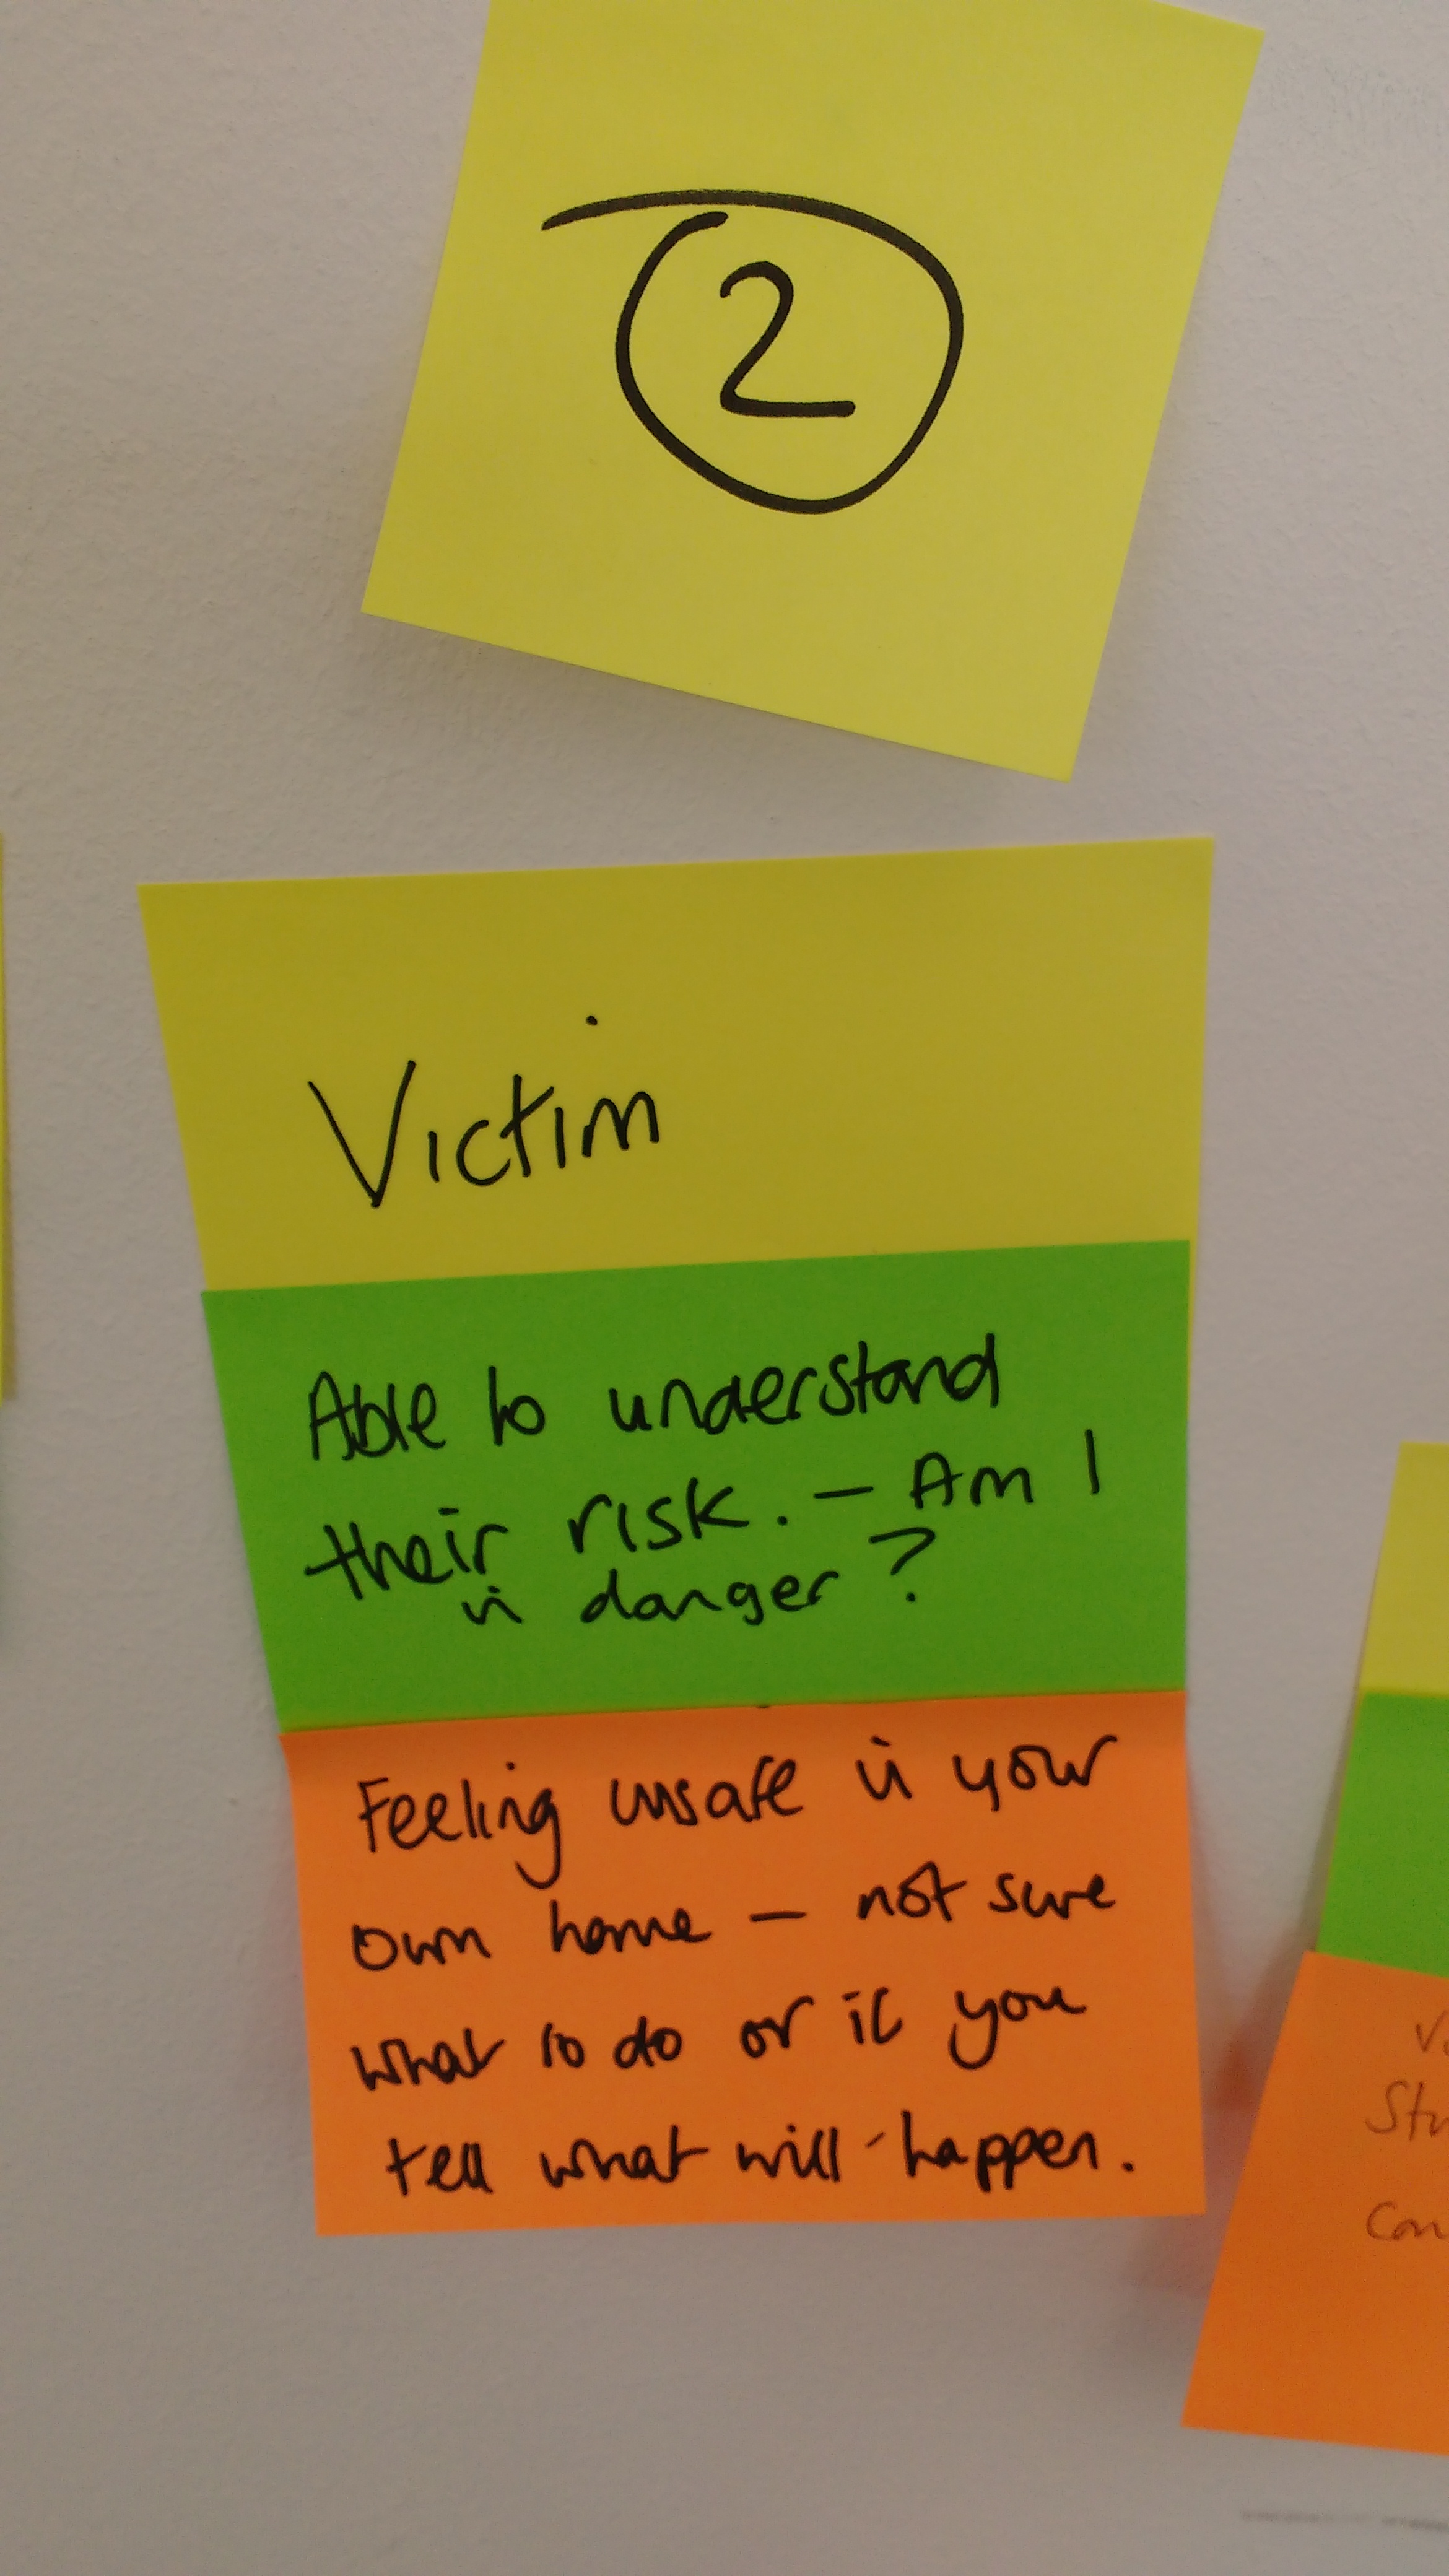 2
Victim
Able to understand
their risk. – Am I
in danger?
Feeling unsafe in your
own home – not sure
what to do or if you
tell what will happen.